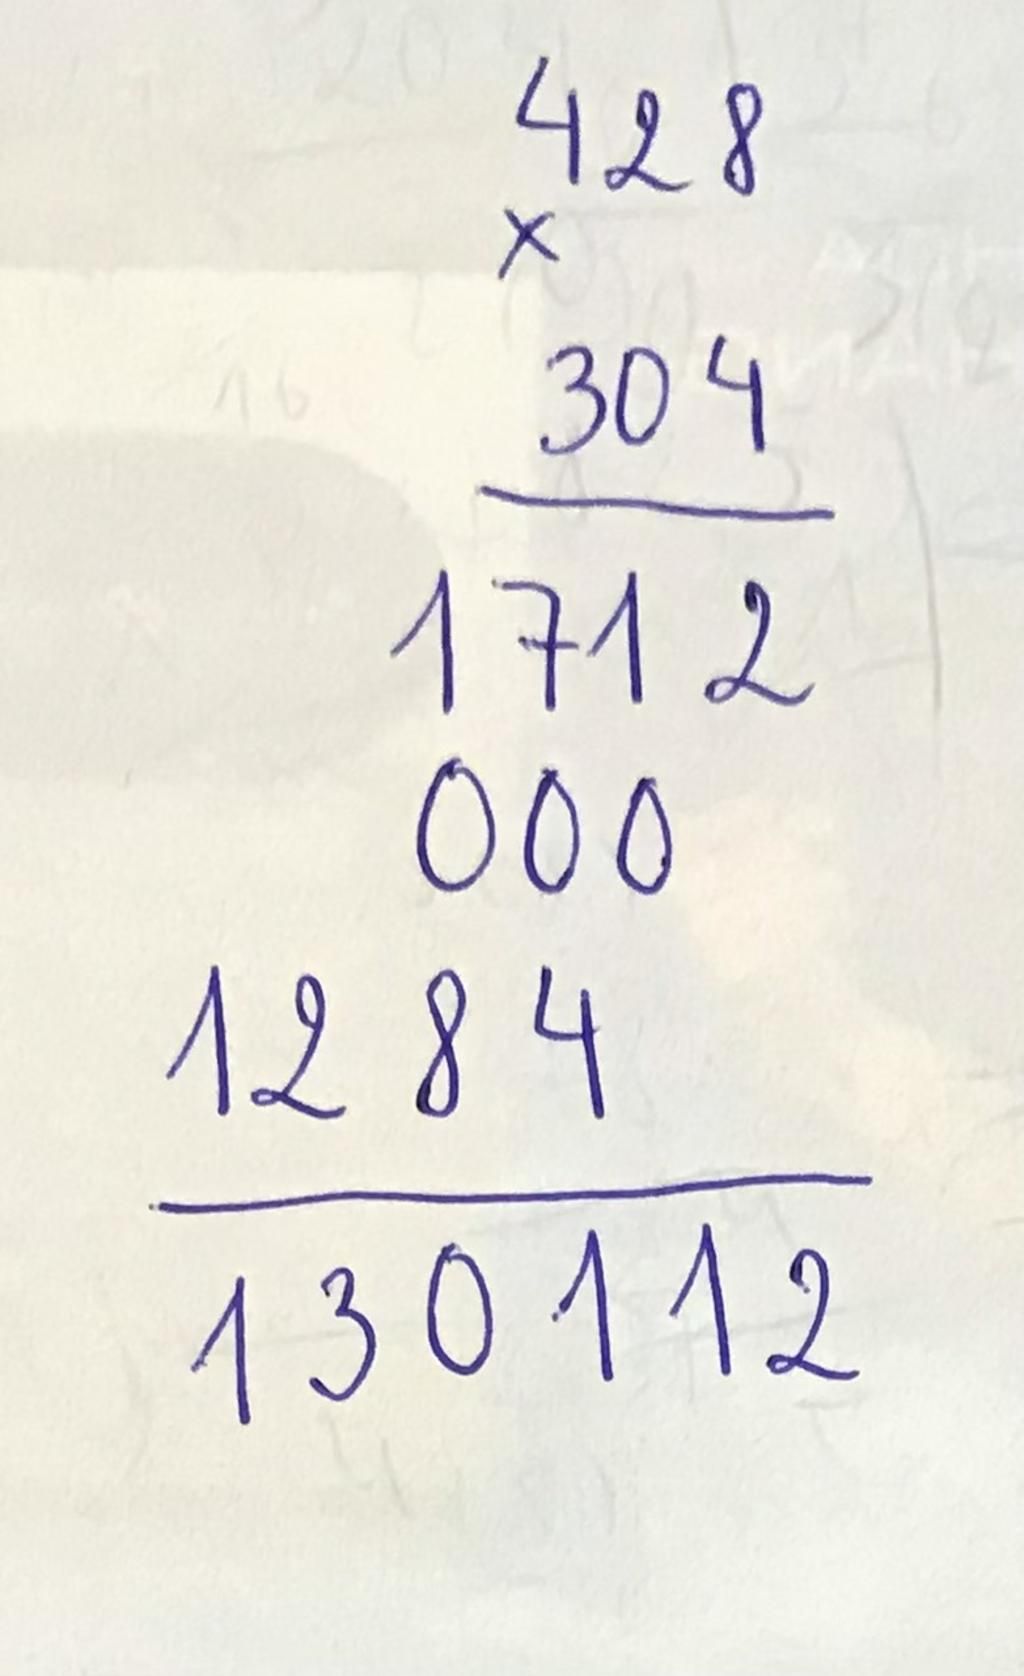 428
×
304
1712
000
1284
130112